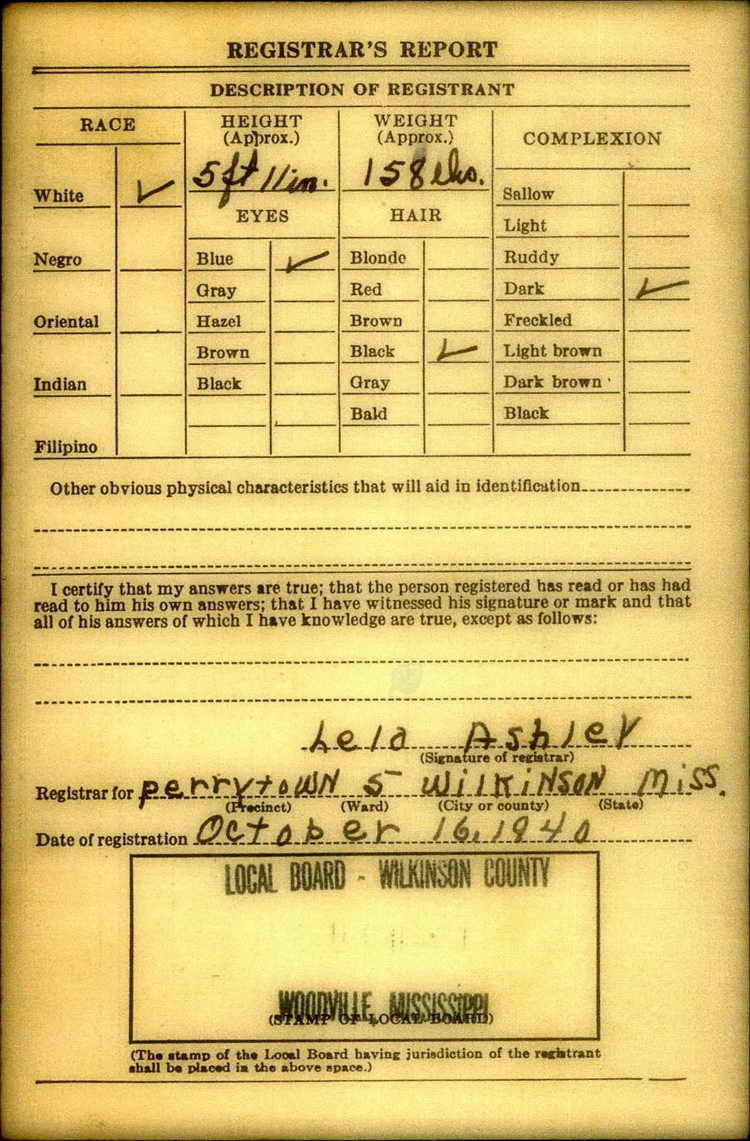 REGISTRAR'S REPORT
DESCRIPTION OF REGISTRANT
RACE
HEIGHT
(Approx.)
WEIGHT
(Approx.)
COMPLEXION
5 ft 11 in.
158 lbs.
White ✓
EYES
HAIR
Sallow
Light
Negro
Blue ✓
Blonde
Ruddy
Gray
Red
Dark ✓
Oriental
Hazel
Brown
Freckled
Brown
Black ✓
Light brown
Indian
Black
Gray
Dark brown
Bald
Black
Filipino
Other obvious physical characteristics that will aid in identification
I certify that my answers are true; that the person registered has read or has had
read to him his own answers; that I have witnessed his signature or mark and that
all of his answers of which I have knowledge are true, except as follows:
Lela Ashley
(Signature of registrar)
Registrar for Perrytown 5 Wilkinson Miss.
(Precinct) (Ward) (City or county) (State)
Date of registration October 16, 1940
LOCAL BOARD - WILKINSON COUNTY
WOODVILLE, MISSISSIPPI
(STAMP OF LOCAL BOARD)
(The stamp of the Local Board having jurisdiction of the registrant
shall be placed in the above space.)